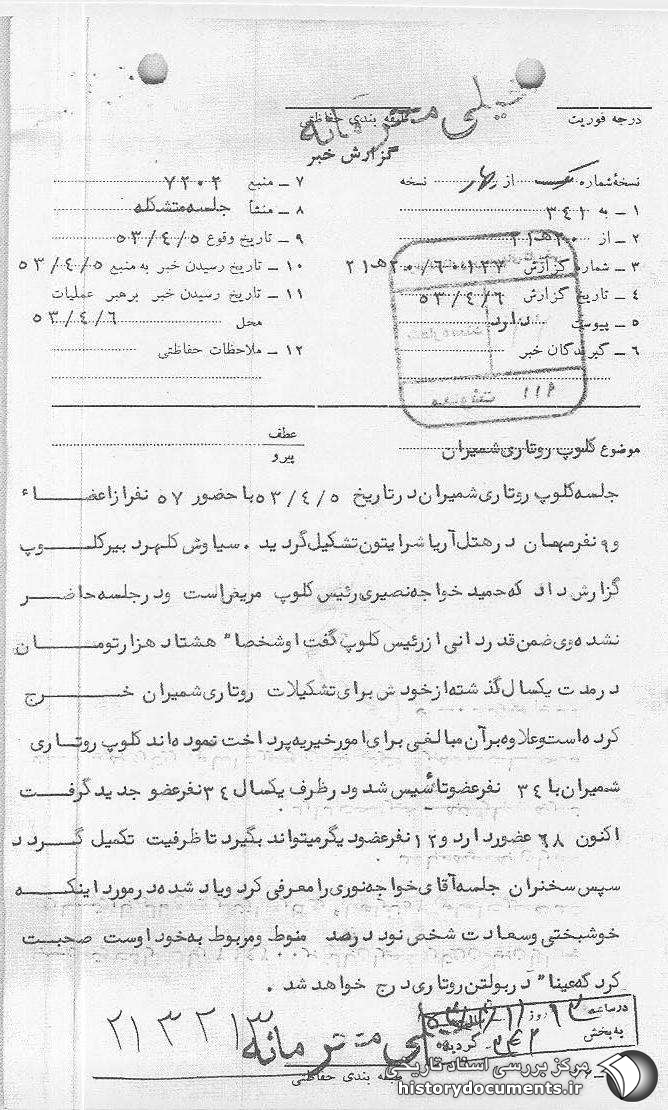 خیلی محرمانه
درجه فوریت
طبقه بندی حفاظتی
گزارش خبر
نسخه شماره از چهار نسخه
۱ ـ به ۳۴۱
۲ ـ از ۲۰ هـ ۲۱
۳ ـ شماره گزارش ۶۰۱۲۳/۲۰ هـ ۲۱
۴ ـ تاریخ گزارش ۵۳/۴/۶
۵ ـ پیوست ندارد
۶ ـ گیرندگان خبر
۷ ـ منبع ۷۲۰۲
۸ ـ منشأ جلسه متشکله
۹ ـ تاریخ وقوع ۵۳/۴/۵
۱۰ ـ تاریخ رسیدن خبر به منبع ۵۳/۴/۵
۱۱ ـ تاریخ رسیدن خبر برهبر عملیات
محل ۵۳/۴/۶
۱۲ ـ ملاحظات حفاظتی
موضوع کلوپ روتاری شمیران
عطف
پیرو
جلسه کلوپ روتاری شمیران در تاریخ ۵۳/۴/۵ با حضور ۵۷ نفر از اعضاء
و ۹ نفر مهمان در هتل آریا شرایتون تشکیل گردید . سیاوش کلهر دبیر کلوپ
گزارش داد که حمید خواجه نصیری رئیس کلوپ مریض است و در جلسه حاضر
نشده وی ضمن قدردانی از رئیس کلوپ گفت او شخصا" هشتاد هزار تومان
در مدت یکسال گذشته از خودش برای تشکیلات روتاری شمیران خرج
کرده است و علاوه بر آن مبالغی برای امور خیریه پرداخت نموده اند کلوپ روتاری
شمیران با ۳۴ نفر عضو تأسیس شد و در ظرف یکسال ۳۴ نفر عضو جدید گرفت
اکنون ۶۸ عضو دارد و ۱۲ نفر عضو دیگر میتواند بگیرد تا ظرفیت تکمیل گردد
سپس سخنران جلسه آقای خواجه نوری را معرفی کرد و یاد شده در مورد اینکه
خوشبختی و سعادت شخص نود درصد منوط و مربوط به خود اوست صحبت
کرد که عینا" در بولتن روتاری درج خواهد شد .
در ساعت روز
به بخش گردید
خیلی محرمانه
طبقه بندی حفاظتی
مرکز بررسی اسناد تاریخی
historydocuments.ir